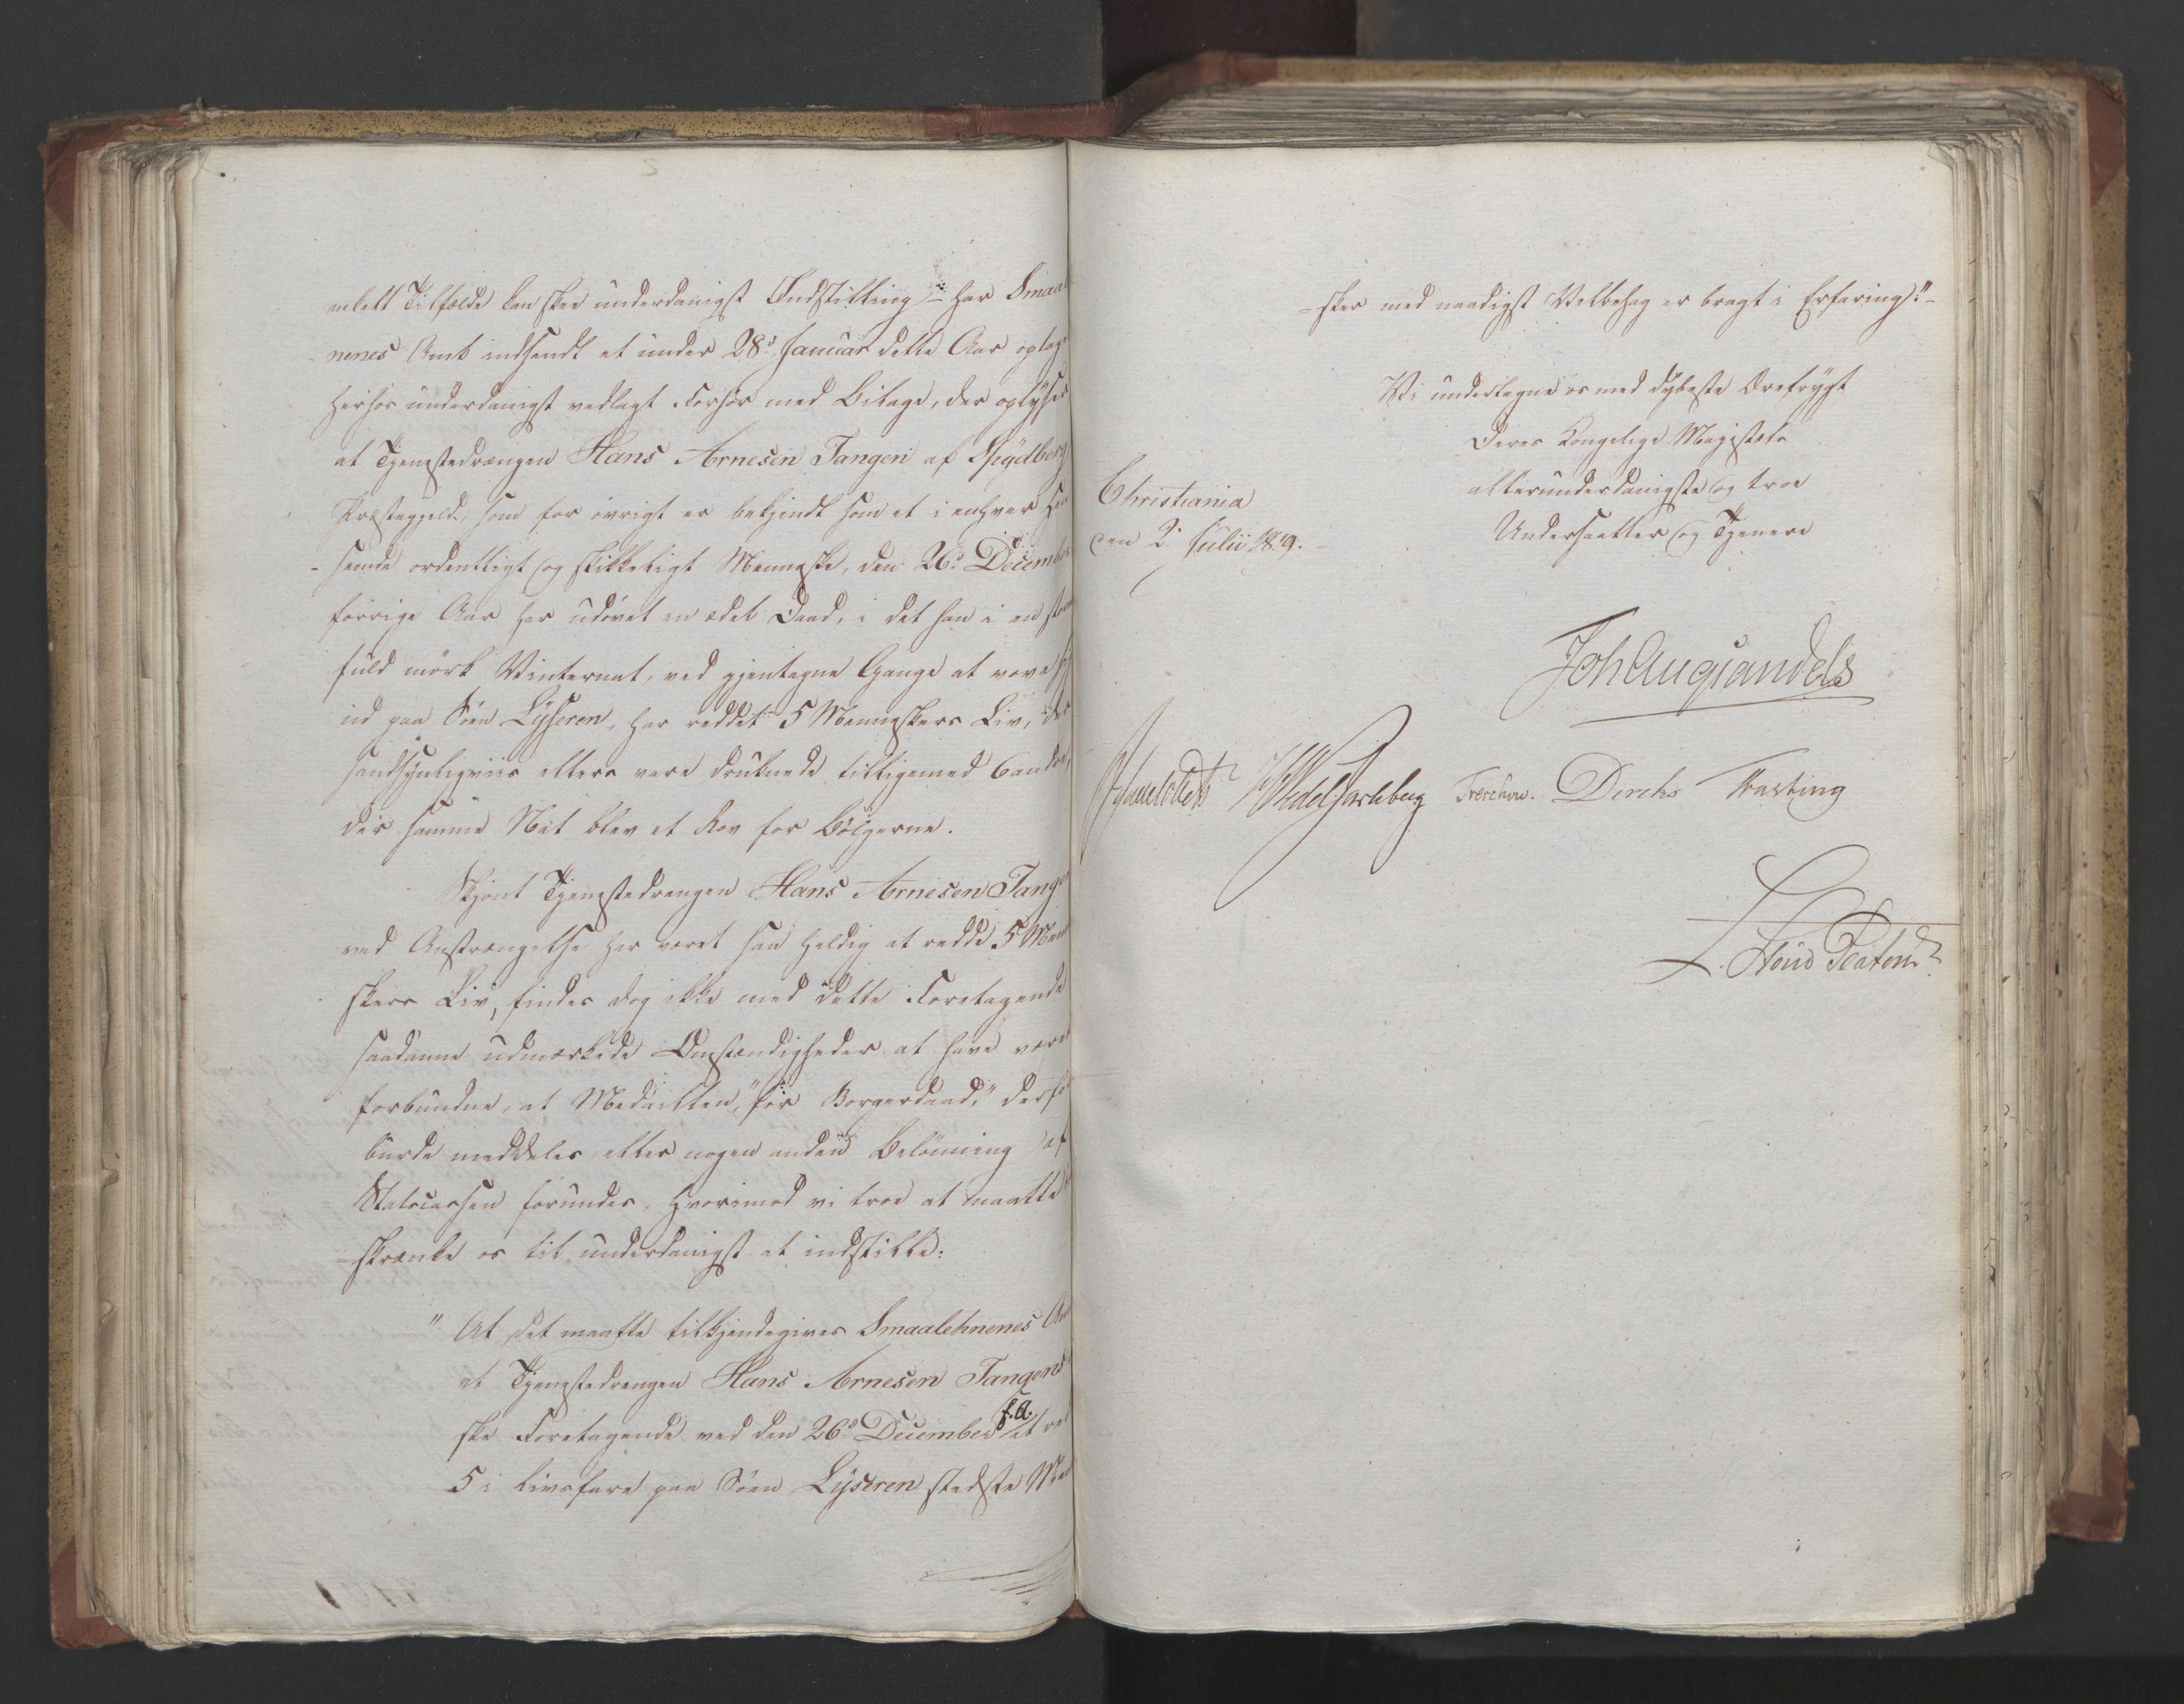 enkelt Tilfælde kan skee underdanigst Indstilling – har Smaa
nenes Amt indsendt et under 28d Januar dette Aar optag
herhos underdanigst vedlagt Forhør med Bilage, der oplyser
at Tjenestedrængen Hans Arnesen Tangen af Spydberg
Præstegjeld, som for øvrigt er bekjendt som et i enhver Hen
-seende ordentligt og skikkeligt Menneske, den 26d December
forrige Aar har udøvet en ædel Daad, i det han i en storm
fuld mørk Vinternat, ved gjentagne Gange at vove sig
ud paa Søen Lyseren, har reddet 5 Menneskers Liv, der
sandsynligviis ellers vare druknede tilligemed 6 andre,
der samme Nat blev et Rov for Bølgerne.
Skjønt Tjenestedrengen Hans Arnesen Tangen
ved Anstrængelse har været saa heldig at redde 5 Menne
skers Liv, findes dog ikke med dette Foretagende
saadanne udmærkede Omstændigheder at have være
forbundne, at Medaillen, "for Borgerdaad," derfor
burde meddeles eller nogen anden Belønning af
Statscassen forundes, hvorimod vi troe at maatte
=skrænke os til underdanigst at indstille:
" At det maatte tilkjendegives Smaalehnenes Am
at Tjenestedrengen Hans Arnesen Tangens
ske Foretagende ved den 26d December f.A. at re
5 i Livsfare paa Søen Lyseren stedste Men
=sker med naadigst Velbehag er bragt i Erfaring."-
Vi undertegne os med dybeste Ærefrygt
Deres Kongelige Majestæts
allerunderdanigste og troe
Undersaatter og Tjenere
Christiania
den 2 Julii 1819.
Joh Aug Sandels
WedelJarlsberg Treschow. Diriks Fasting